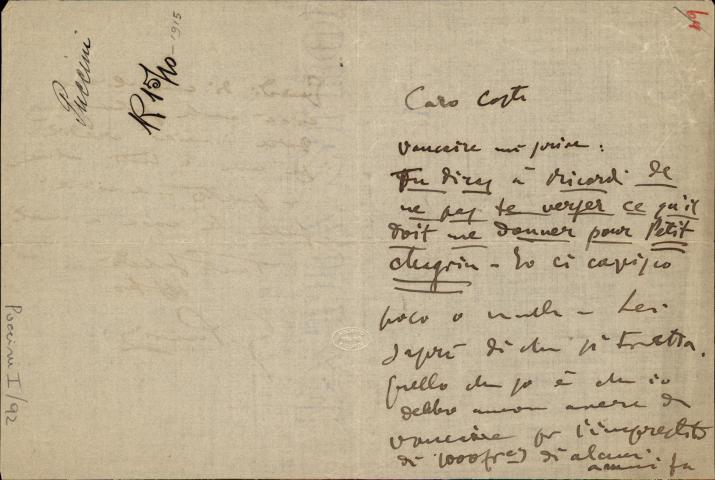 Puccini
R 15/10-1915
Puccini I/92
64
Caro Costa
Vaucaire mi scrive:
Tu diras à Ricordi de
ne pas te verser ce qu'il
doit me donner pour Petit
chagrin - Io ci capisco
poco o nulla - Lei
saprà di che si tratta.
Quello che so è che io
debbo ancora avere da
Vaucaire per l'imprestito
di 1000 frcs di alcuni
anni fa